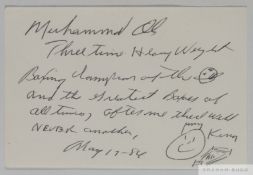 Muhammad Ali
Three time Heavy Weight
Boxing Champion of the
and the greatest Boxer of
all times, after me there will
NEVER another,
King
May 17-86